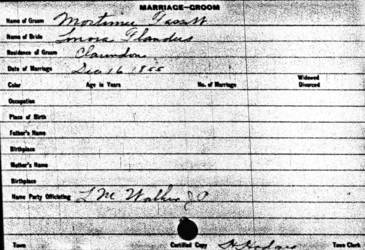 MARRIAGE—GROOM
Name of Groom Mortimer
Name of Bride Lenora Flanders
Residence of Groom Clarendon
Date of Marriage Dec 16 18
Color Age in Years No. of Marriage Widowed Divorced
Occupation
Place of Birth
Father's Name
Birthplace
Mother's Name
Birthplace
Name Party Officiating L Mc Walker J P
Town Certified Copy H Hodges Town Clerk